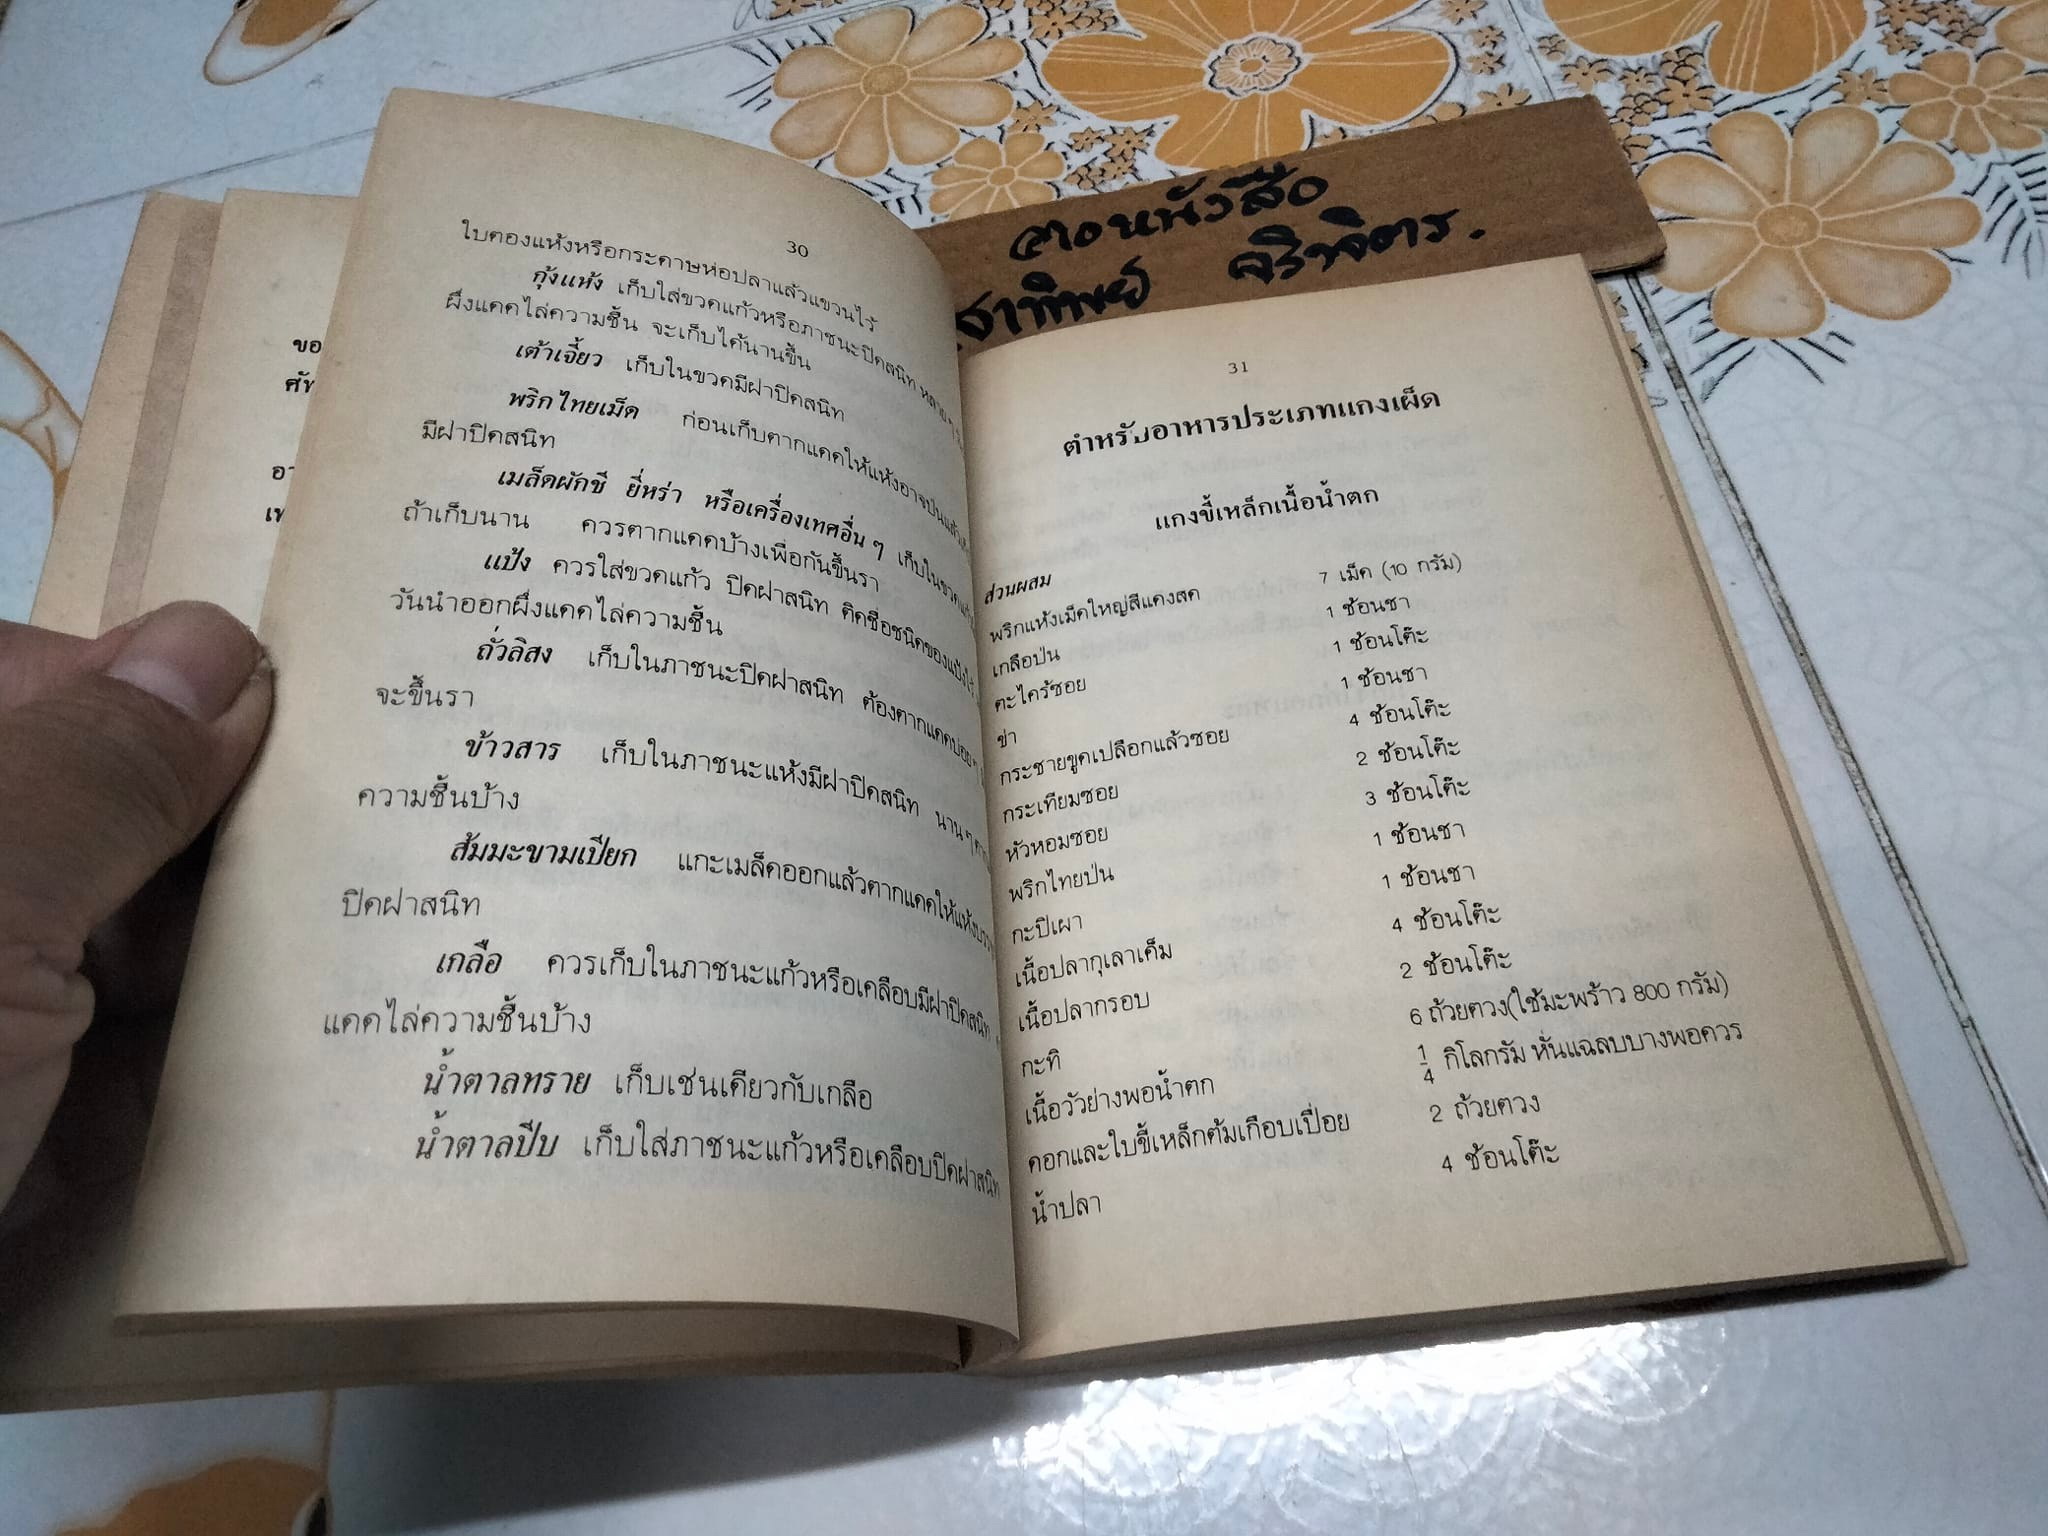 ขอ
ศัพ
อา
เท
30
ใบตองแห้งหรือกระดาษห่อปลาแล้วแขวนไว้
กุ้งแห้ง เก็บใส่ขวดแก้วหรือภาชนะปิดสนิท หลาย ๆ
ผึ่งแดดไล่ความชื้น จะเก็บได้นานขึ้น
เต้าเจี้ยว เก็บในขวดมีฝาปิดสนิท
พริกไทยเม็ด ก่อนเก็บตากแดดให้แห้งอาจป่นแล้ว
มีฝาปิดสนิท
เมล็ดผักชี ยี่หร่า หรือเครื่องเทศอื่น ๆ เก็บในขวดแก้ว
ถ้าเก็บนาน ควรตากแดดบ้างเพื่อกันขึ้นรา
แป้ง ควรใส่ขวดแก้ว ปิดฝาสนิท ติดชื่อชนิดของแป้งไว้
วันนำออกผึ่งแดดไล่ความชื้น
ถั่วลิสง เก็บในภาชนะปิดฝาสนิท ต้องตากแดดบ่อย ๆ
จะขึ้นรา
ข้าวสาร เก็บในภาชนะแห้งมีฝาปิดสนิท นาน ๆ
ความชื้นบ้าง
ส้มมะขามเปียก แกะเมล็ดออกแล้วตากแดดให้แห้ง
ปิดฝาสนิท
เกลือ ควรเก็บในภาชนะแก้วหรือเคลือบมีฝาปิดสนิท
แดดไล่ความชื้นบ้าง
น้ำตาลทราย เก็บเช่นเดียวกับเกลือ
น้ำตาลปีบ เก็บใส่ภาชนะแก้วหรือเคลือบปิดฝาสนิท
31
ตำหรับอาหารประเภทแกงเผ็ด
แกงขี้เหล็กเนื้อน้ำตก
ส่วนผสม
พริกแห้งเม็ดใหญ่สีแดงสด 7 เม็ด (10 กรัม)
เกลือป่น 1 ช้อนชา
ตะไคร้ซอย 1 ช้อนโต๊ะ
ข่า 1 ช้อนชา
กระชายขูดเปลือกแล้วซอย 4 ช้อนโต๊ะ
กระเทียมซอย 2 ช้อนโต๊ะ
หัวหอมซอย 3 ช้อนโต๊ะ
พริกไทยป่น 1 ช้อนชา
กะปิเผา 1 ช้อนชา
เนื้อปลากุเลาเค็ม 4 ช้อนโต๊ะ
เนื้อปลากรอบ 2 ช้อนโต๊ะ
กะทิ 6 ถ้วยตวง(ใช้มะพร้าว 800 กรัม)
เนื้อวัวย่างพอน้ำตก 1/4 กิโลกรัม หั่นแฉลบบางพอควร
ดอกและใบขี้เหล็กต้มเกือบเปื่อย 2 ถ้วยตวง
น้ำปลา 4 ช้อนโต๊ะ